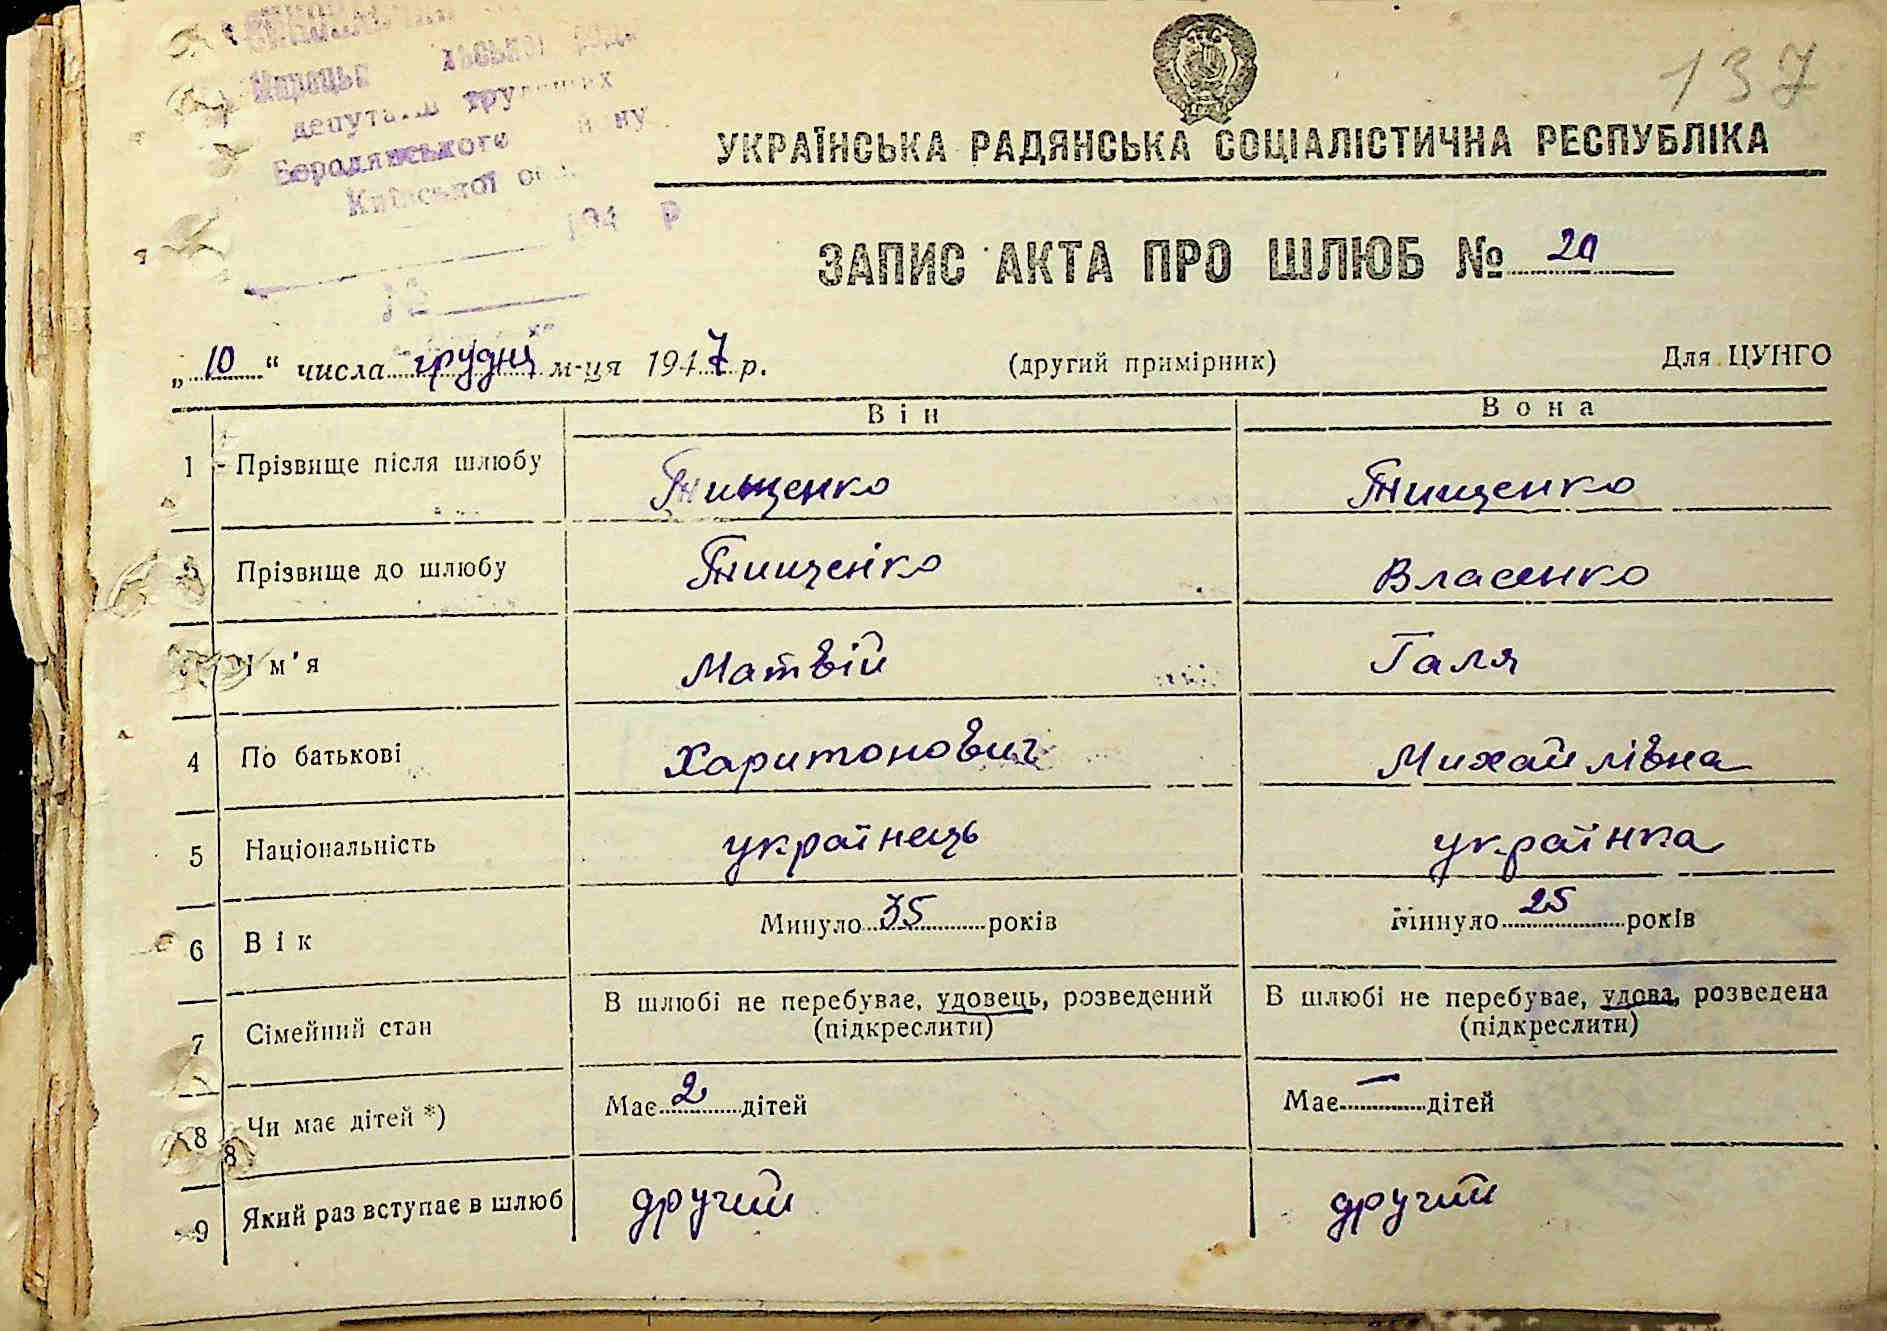 137
депутатів трудящих
Бородянського
Київської
194 р
УКРАЇНСЬКА РАДЯНСЬКА СОЦІАЛІСТИЧНА РЕСПУБЛІКА
ЗАПИС АКТА ПРО ШЛЮБ № 20
„10“ числа грудня м-ця 1947 р. (другий примірник) Для ЦУНГО
Він Вона
1 Прізвище після шлюбу Гнищенко Гнищенко
Прізвище до шлюбу Гнищенко Власенко
Ім'я Матвій Галя
4 По батькові Харитонович Михайлівна
5 Національність українець українка
6 Вік Минуло 35 років Минуло 25 років
7 Сімейний стан В шлюбі не перебуває, удовець, розведений В шлюбі не перебуває, удова, розведена
(підкреслити) (підкреслити)
8 Чи має дітей *) Має 2 дітей Має — дітей
8
9 Який раз вступає в шлюб другий другий